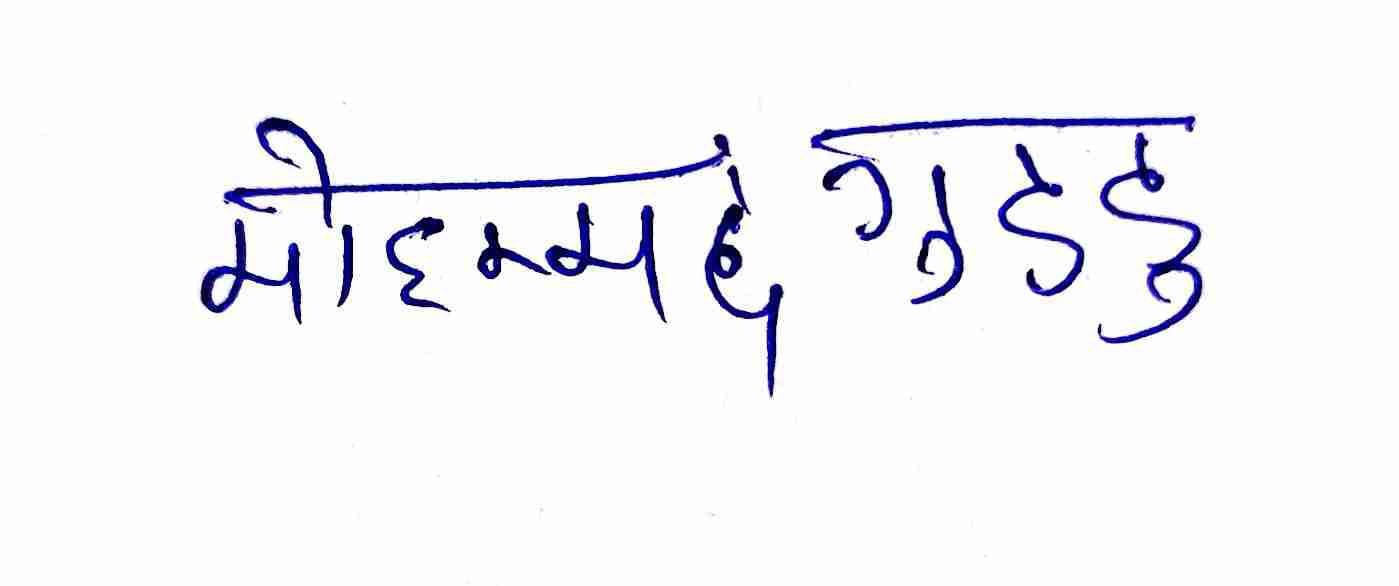 मोहम्मद गुडडु